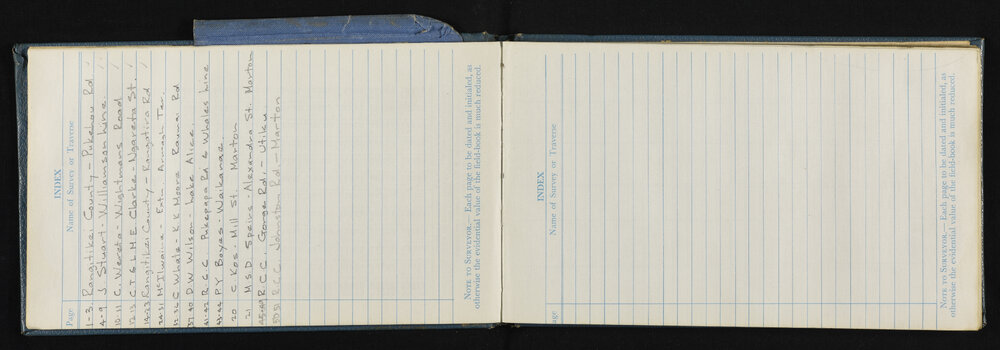 INDEX
Page Name of Survey or Traverse
1-3 Rangitikei County - Pukehou Rd
4-9 J Stuart - Williamson Line
10-11 C. Wereta - Wightmans Road
12-13 C T & L M E Clarke - Ngareta St.
14-23 Rangitikei County - Rangatira Rd
24-31 McIlwaine - Extn Armagh Ter.
32-36 C Whale - K K Moore Rauma Rd
37-40 D W Wilson - Lake Alice
41-42 R C C Pukepapa Rd & Whales Line
43-44 P. Y Boyes - Waikanae
20 C Kos - Mill St. Marton
21 M & D Speirs - Alexandra St. Marton
45-49 R. C. C. Gorge Rd. - Utiku
50-51 R.C.C. Johnston Rd - Marton
NOTE TO SURVEYOR.— Each page to be dated and initialed, as
otherwise the evidential value of the field-book is much reduced.
INDEX
age Name of Survey or Traverse
NOTE TO SURVEYOR.— Each page to be dated and initialed, as
otherwise the evidential value of the field-book is much reduced.